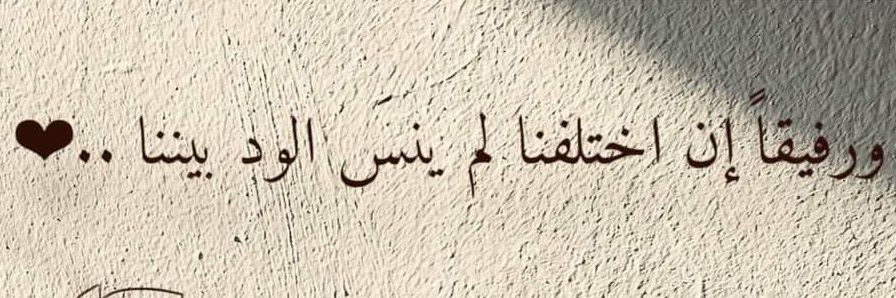 ورفيقاً إن اختلفنا لم ينسَ الود بيننا ..❤